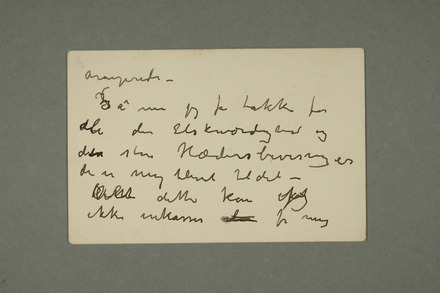 arrangerede –
Så må jeg få takke for
al den Elskværdighed og
den store Hædersbevisning
der er mig blevet tildel –
dette kan jeg
ikke for mig